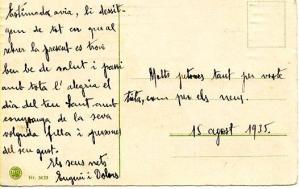 Estimada avia, li desitgem de tot cor que al rebrer la present es trovi ben be de salut i passi amb tota l'alegria el dia del seu Sant amb companyia de la seva volguda filla i persones del seu gust.
Els seus nets
Eugeni i Dolors.
Molts petons tant per vosté
tots, com per els meus.
15 agost 1935.
Nr. 3633